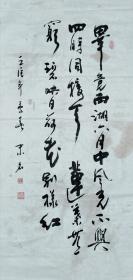 畢竟西湖六月中風光不與
四時同接天蓮葉無
窮碧映日荷花別樣紅